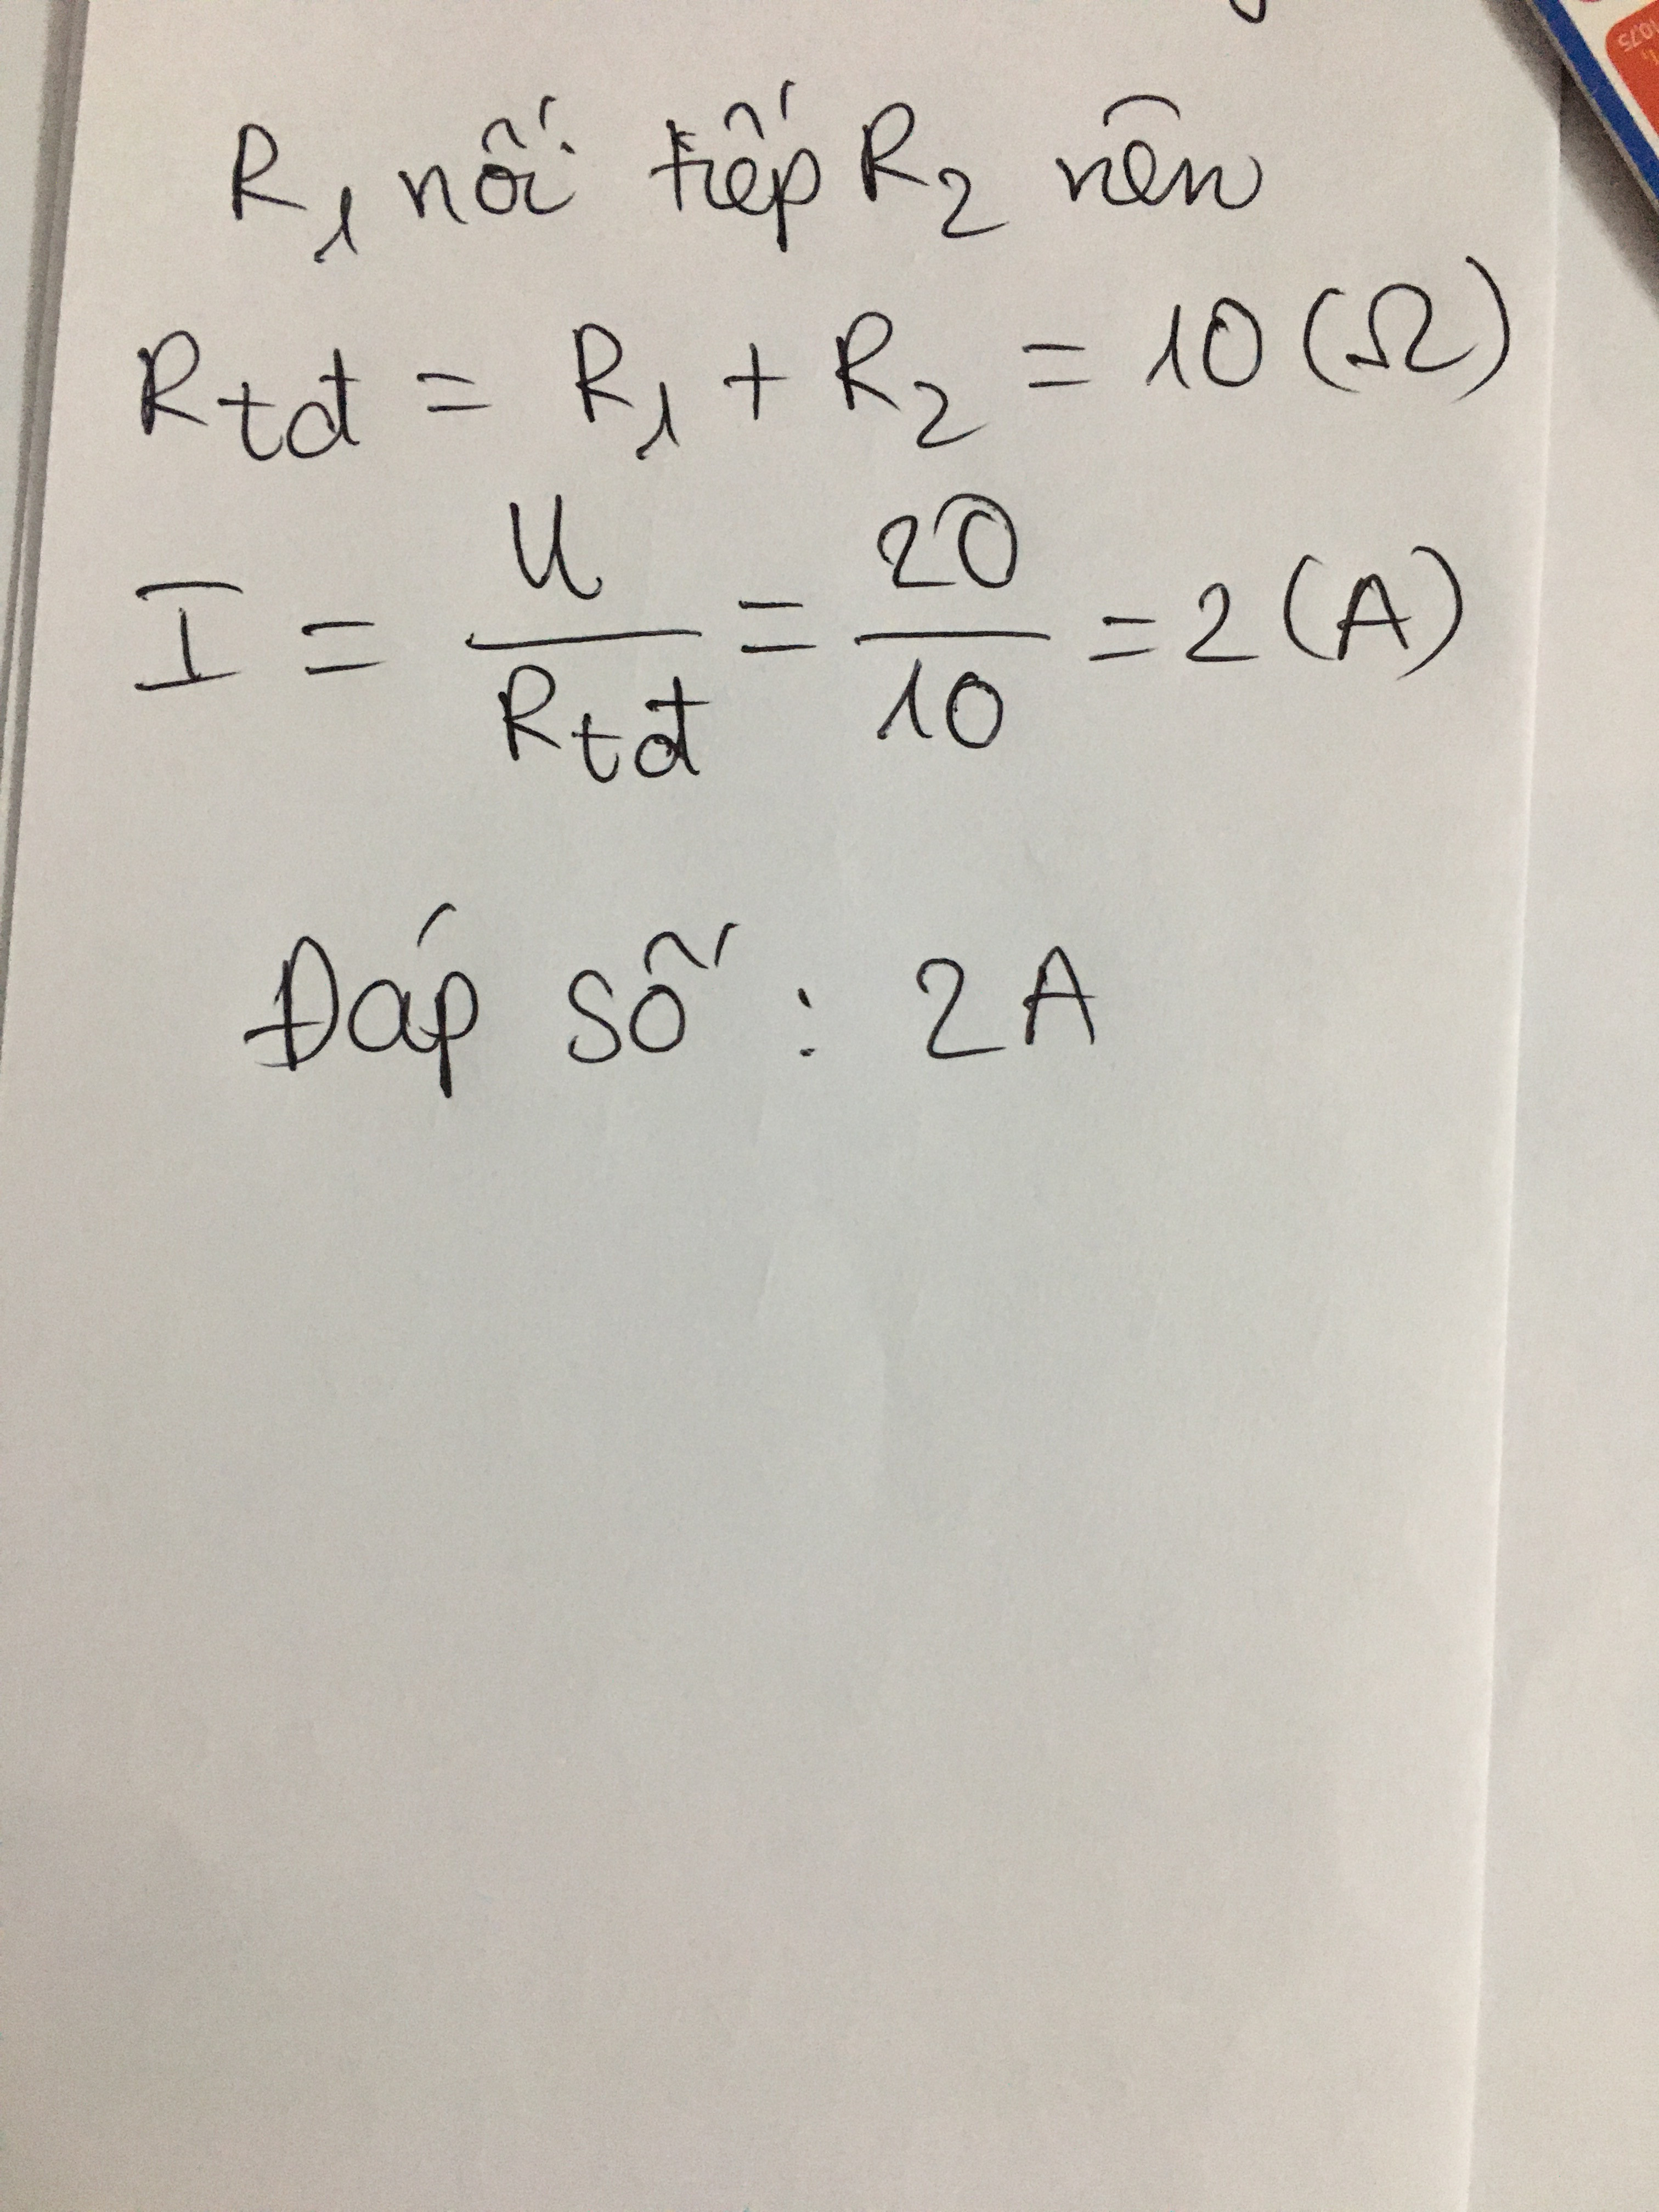 R₁ nối tiếp R₂ nên
Rtđ = R₁ + R₂ = 10 (Ω)
I = U/Rtđ = 20/10 = 2 (A)
Đáp số : 2A